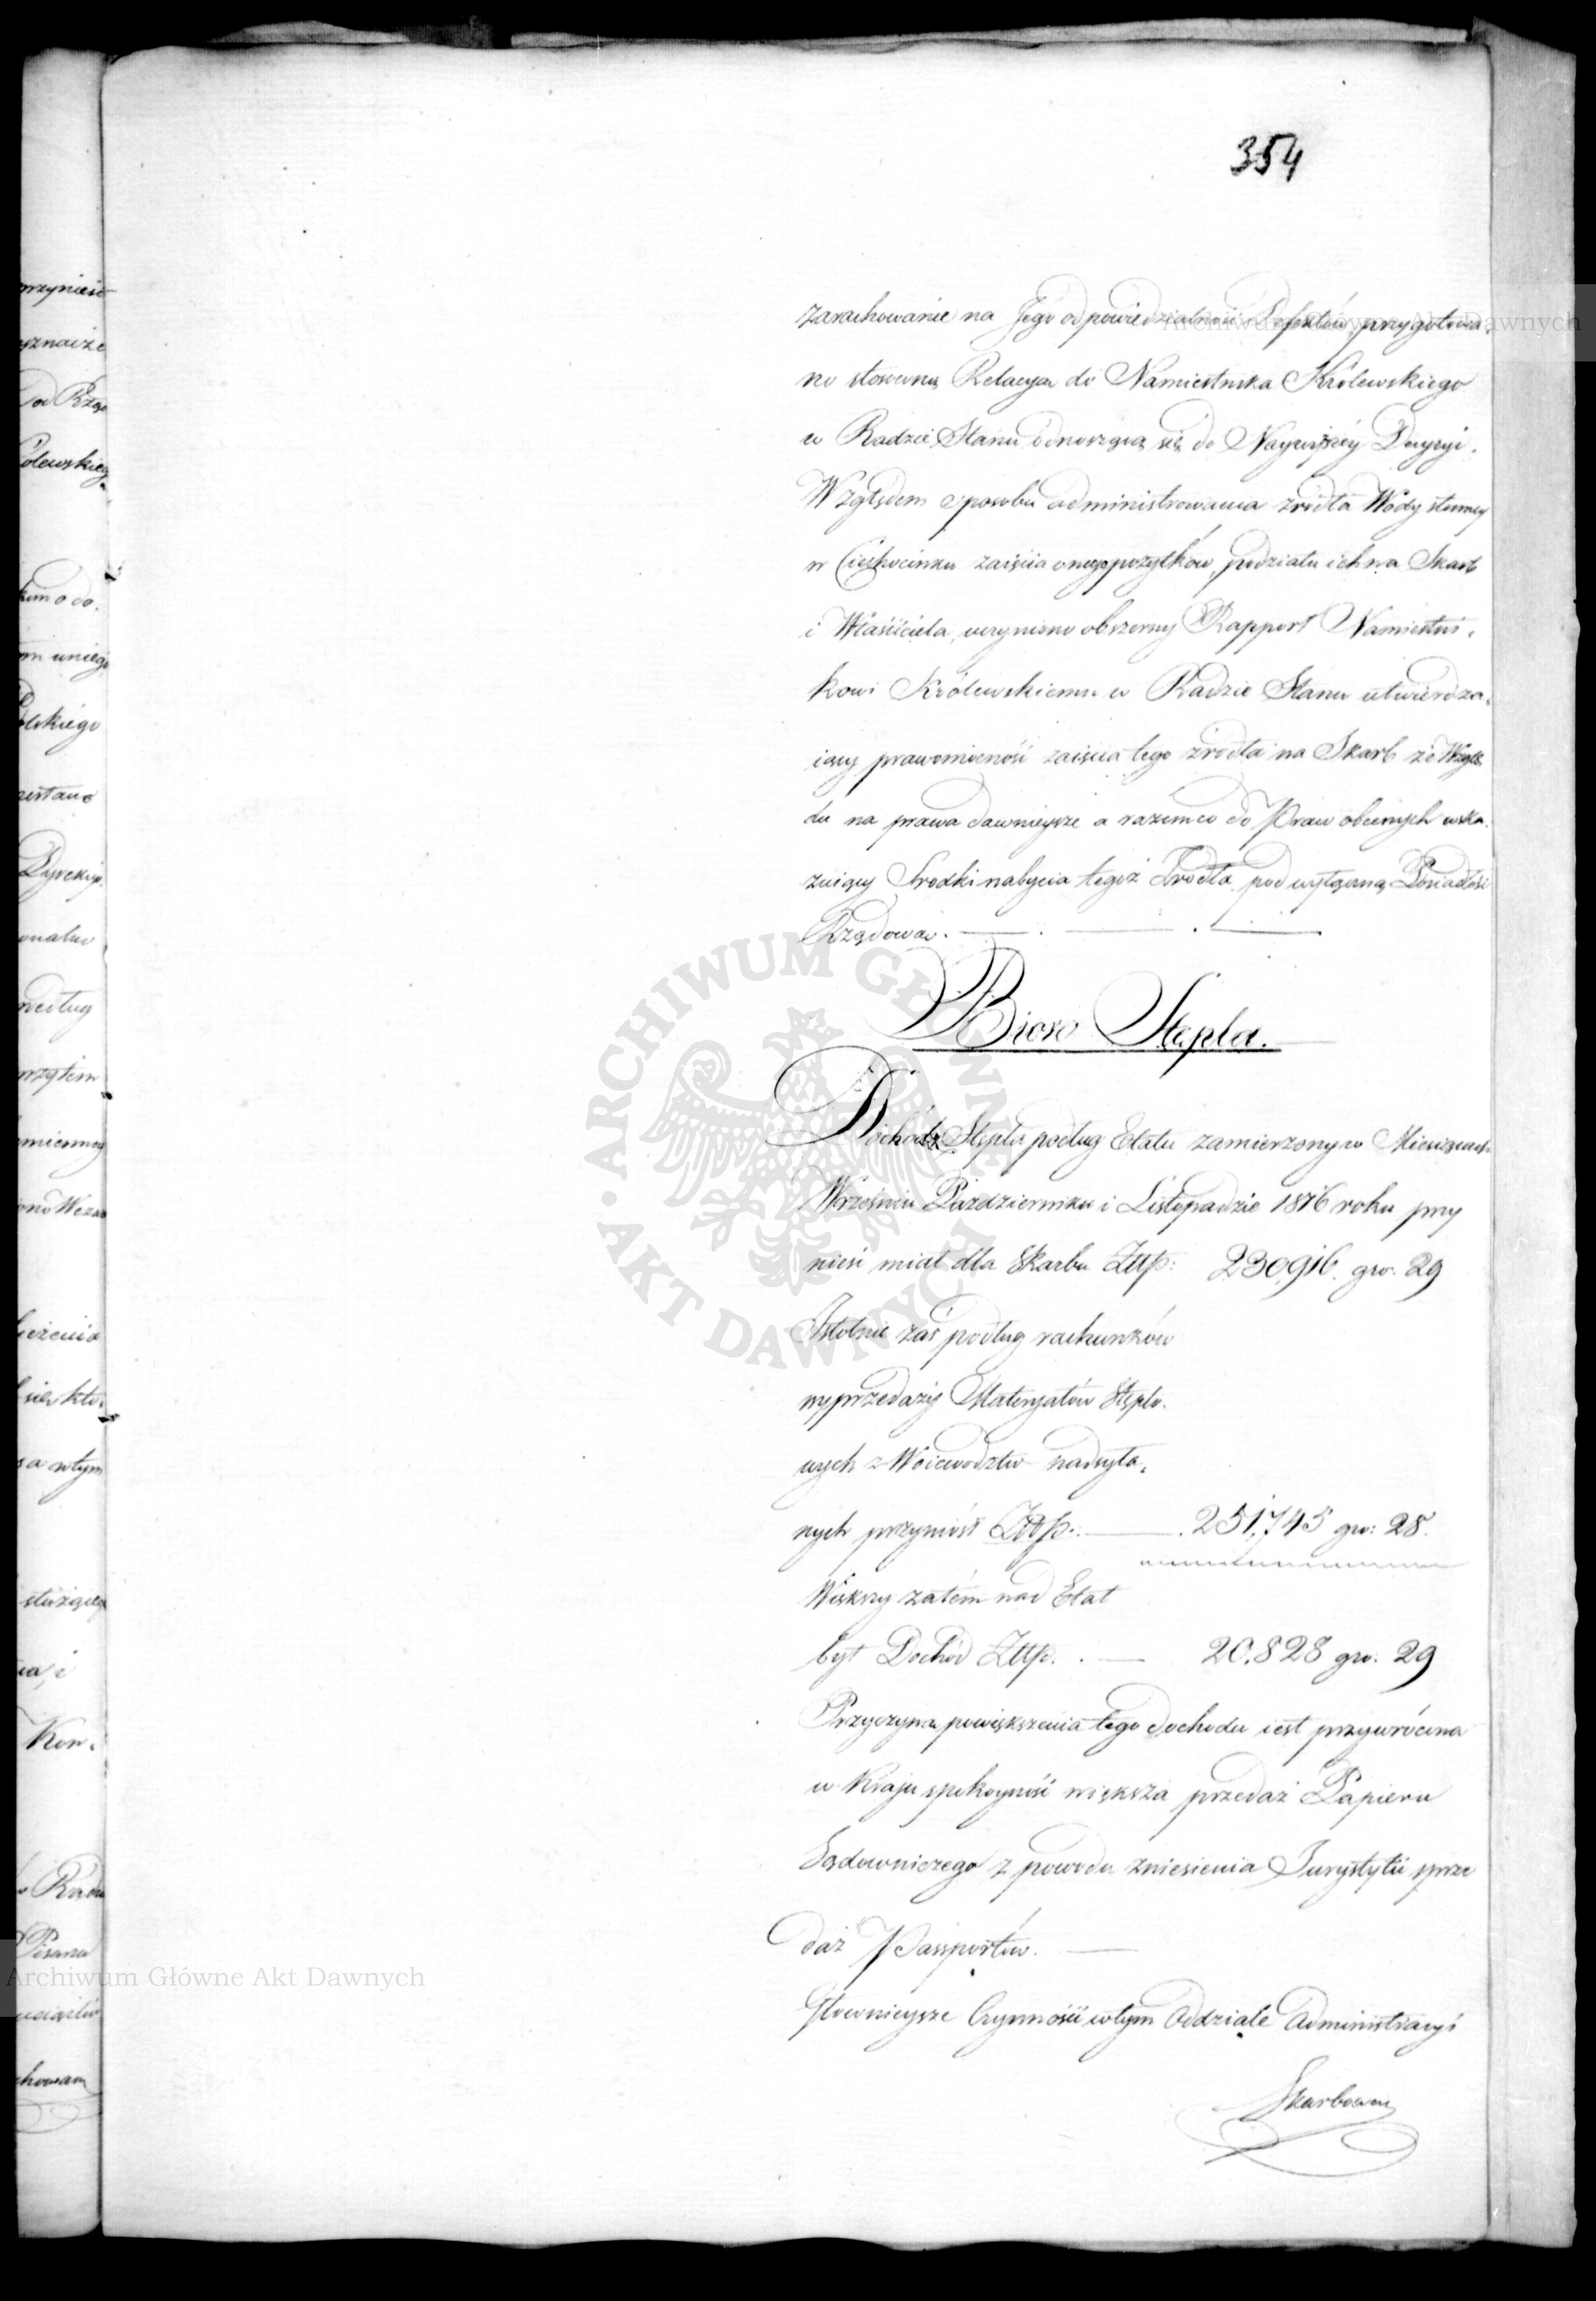 354
zarachowanie na Jego odpowiedzialność Defektów, przygotowa,
no stosowną Relacyą do Namiestnika Królewskiego
w Radzie Stanu odnosząca się do Naywyższéy Decyzyi.
Względem sposobu administrowania źrodła Wody słoney
w Ciechocinku zaięcia onego pożytków, podziału ich na Skarb
i Właściciela, uczyniono obszerny Rapport Namiestni,
kowi Królewskiemu w Radzie Stanu utwierdza,
iący prawomocność zaięcia tego źrodła na Skarb ze Wzglę
du na prawa dawnieysze a razem co do Praw obecnych wska,
zuiący Srodki nabycia tegoż Zrodła pod wyłączną Posiadłość
Rządową.
Bióro Stępla.
Dochód z Stępla podług Etatu zamierzony w Miesiącach
Wrześniu Październiku i Listopadzie 1816 roku przy
nieść miał dla Skarbu Złłp: 230.916. gro: 29
Istotnie zaś podług rachunków
wyprzedaży Materyałów Stęplo,
wych z Woiewodztw nadsyła,
nych przyniósł Złłp: 251,745 gro: 28.
Większy zatém nad Etat
był Dochód Złłp. 20.828 gro. 29
Przyczyną powiększenia tego dochodu iest przywrócona
w Kraju spokoyność większa przedaż Papieru
Sądowniczego z powodu zniesienia Jurystytii sprze
daż Passportów.
Głownieysze Czynności w tym Oddziale Administracyi
Skarbowey
przynieść
Królewskieg
Polskiego
Dyrekcyi
według
Kon,
Archiwum Główne Akt Dawnych
Archiwum Główne Akt Dawnych
ARCHIWUM GŁÓWNE AKT DAWNYCH